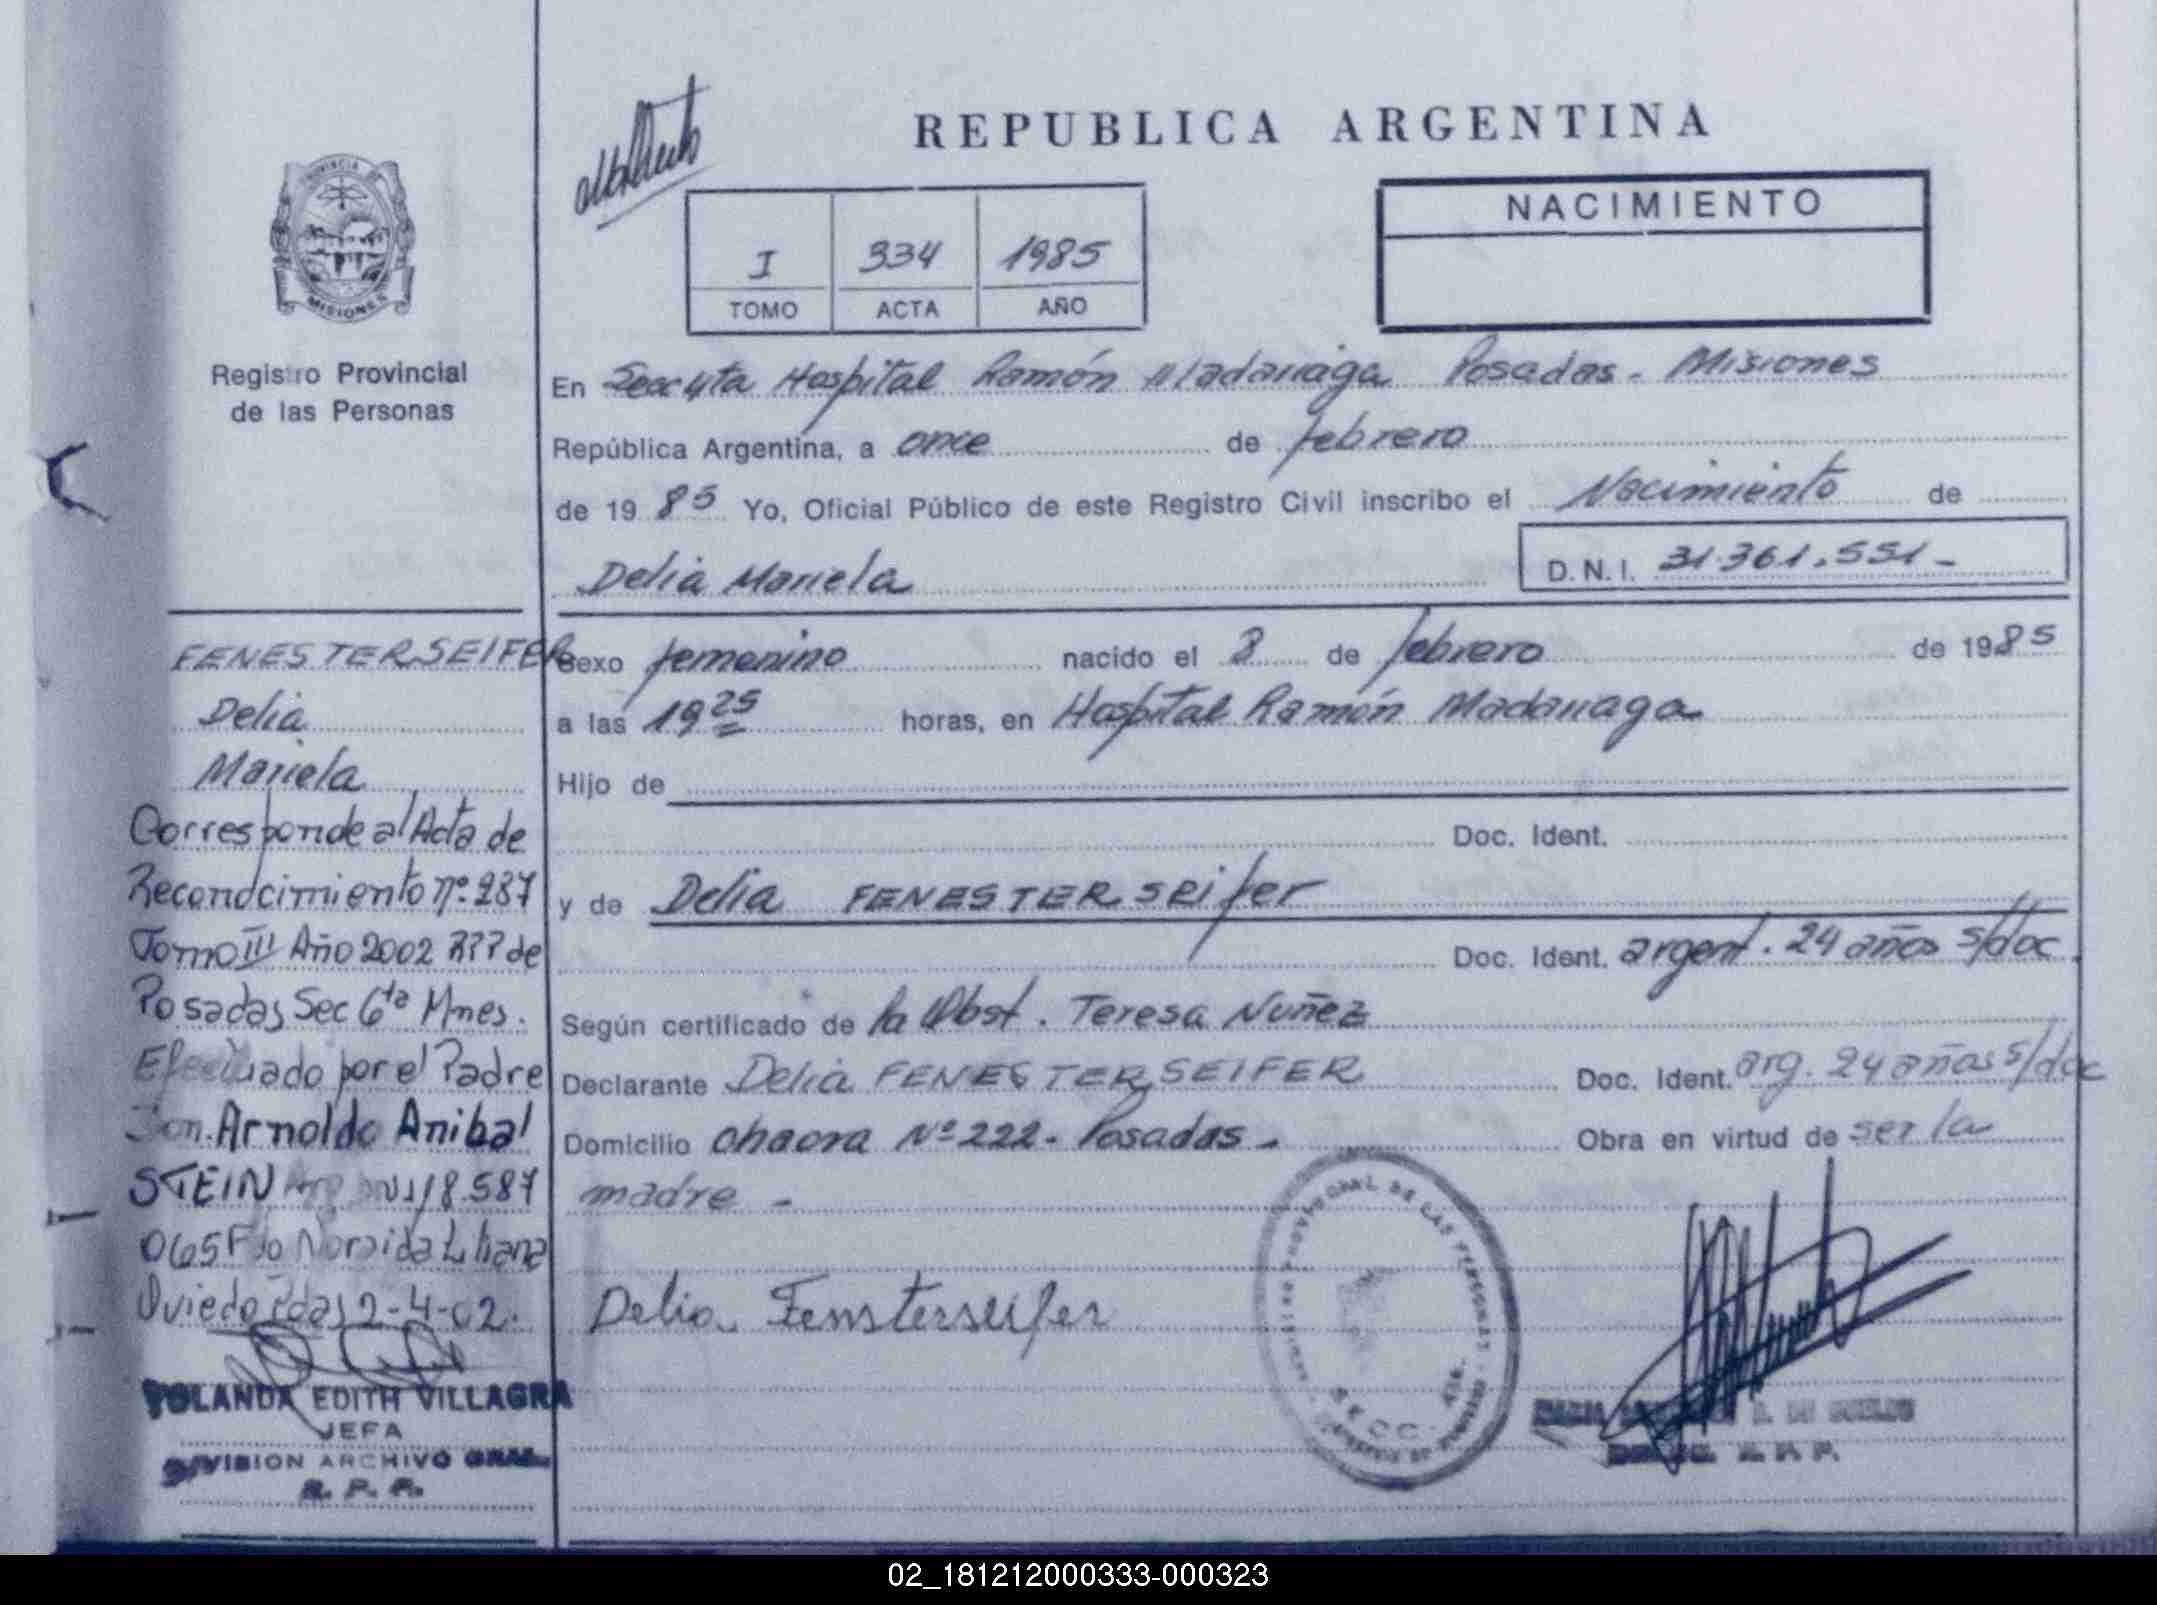 REPUBLICA ARGENTINA
NACIMIENTO
I 334 1985
TOMO ACTA AÑO
PROVINCIA
MISIONES
Registro Provincial
de las Personas
En Secc 4ta Hospital Ramón Madariaga Posadas - Misiones
República Argentina, a once de febrero
de 1985 Yo, Oficial Público de este Registro Civil inscribo el Nacimiento de
Delia Mariela D.N.I. 31.361.551-
Sexo femenino nacido el 8 de febrero de 1985
a las 19 25 horas, en Hospital Ramón Madariaga
Hijo de
Doc. Ident.
y de Delia FENESTERSEifer
Doc. Ident. argent. 24 años s/doc.
Según certificado de la Obst. Teresa Nuñez
Declarante Delia FENESTERSEIFER Doc. Ident. arg. 24 años s/doc
Domicilio chacra Nº 222 - Posadas - Obra en virtud de ser la
madre -
Delia Fensterseifer
FENESTERSEIFER
Delia
Mariela
Corresponde al Acta de
Reconocimiento nº 287
Tomo III Año 2002 RPP de
Posadas Sec 6ta Mnes.
Efectuado por el Padre
Don. Arnoldo Anibal
STEIN Arg DNI 18.587
065 Fdo Noraida Liliana
Oviedo Pdas 2-4-02.
YOLANDA EDITH VILLAGRA
JEFA
DIVISION ARCHIVO GRAL.
R. P. P.
PROVINCIAL DE LAS PERSONAS
SECC. 4ta.
R. P. P.
02_181212000333-000323